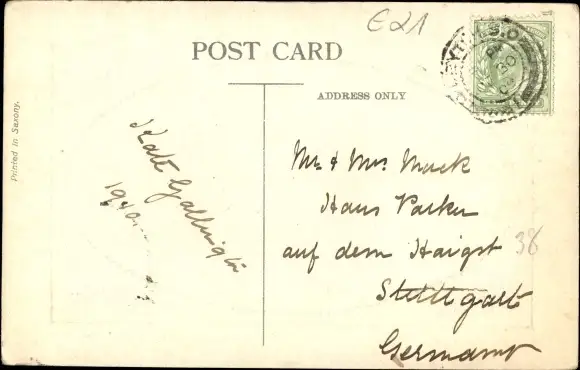 E21
POST CARD
ADDRESS ONLY
Printed in Saxony.
Kate
Mr. & Mrs. Mack
Haus Parker
auf dem Haigst
38
Stuttgart
Germany